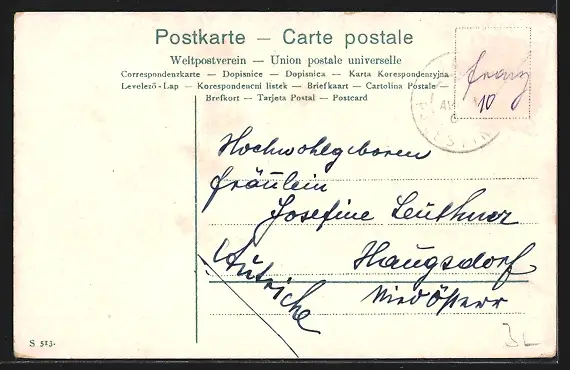 Postkarte — Carte postale
Weltpostverein — Union postale universelle
Correspondenzkarte — Dopisnice — Dopisnica — Karta Korespondenzyjna
Levelező-Lap — Korespondencní listek — Briefkaart — Cartolina Postale —
Brefkort — Tarjeta Postal — Postcard
franz
10
Hochwohlgeboren
Fräulein
Josefine Leuthner
Haugsdorf
Nied Österr
Autriche
S 513.